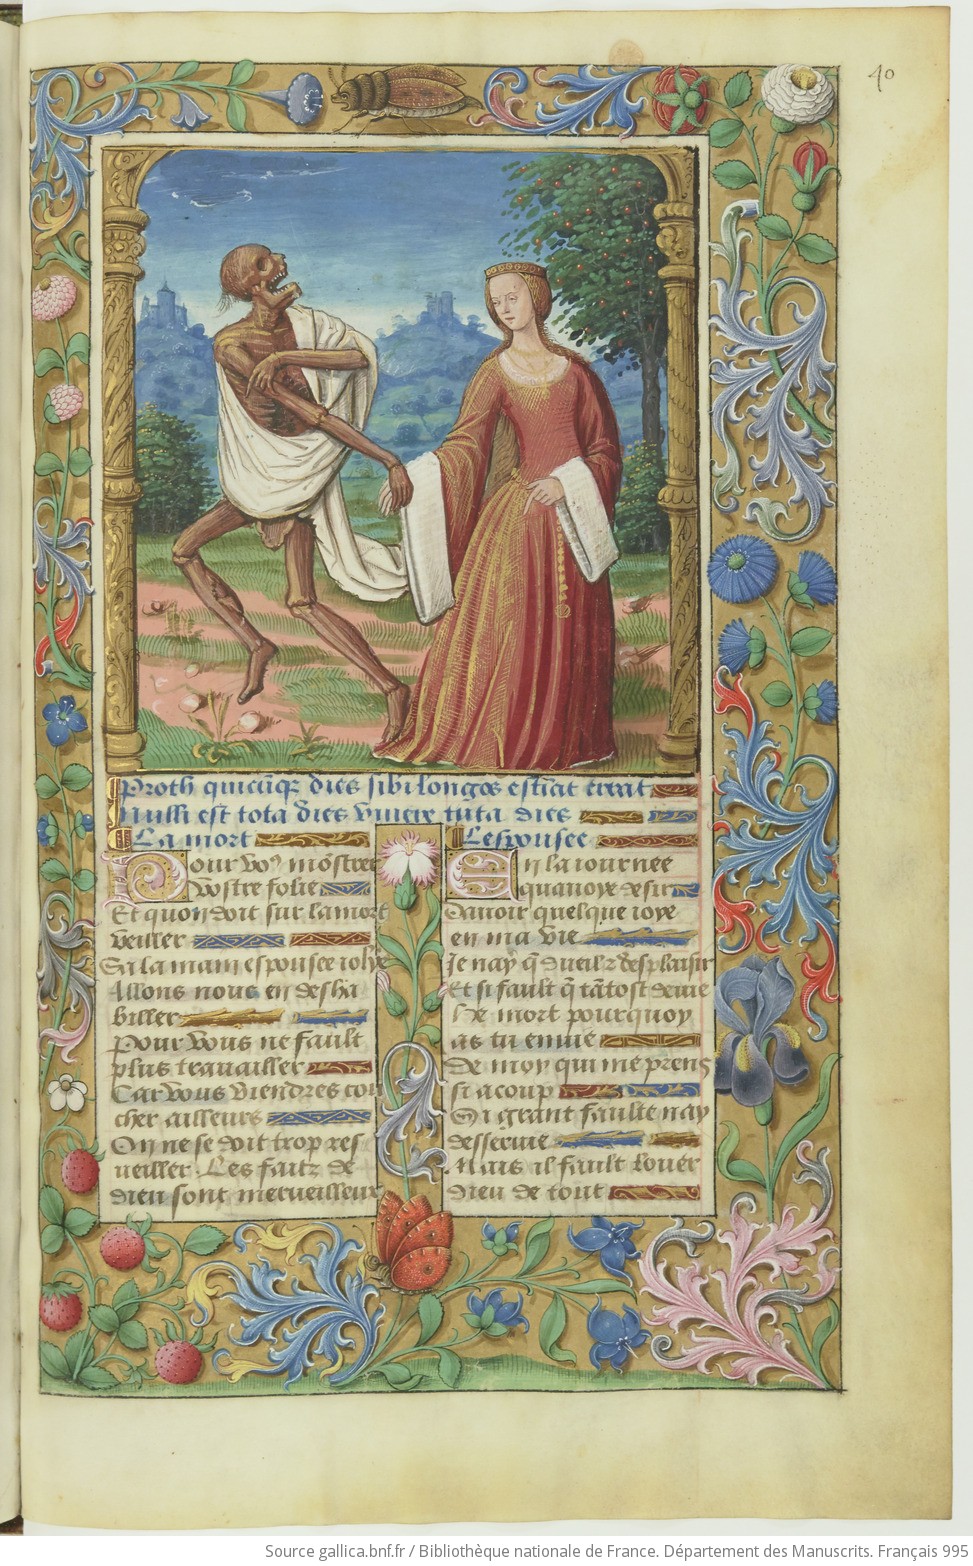 40
Proth quicūq; dies sibi longos estiāt errat
Nulli est tota dies vivere tuta dies
La mort
Pour vous mōstrer
vostre folie
Et quon doit sur la mort
veiller
Sa la main espousee iolye
Allons nous en desha
biller
Pour vous ne fault
plus travailler
Car vous viendres cou
cher ailleurs
On ne se doit trop res
veiller Les faitz de
dieu sont merveilleux
Lespousee
En la iournee
quavoye desir
Davoir quelque ioye
en ma vie
Je nay q̄ dueil z desplaisir
Et si fault q̄ tātost devie
He mort pourquoy
as tu envie
De moy qui me prens
si a coup
Si grant faulte nay
desservie
Mais il fault louer
dieu de tout
Source gallica.bnf.fr / Bibliothèque nationale de France. Département des Manuscrits. Français 995